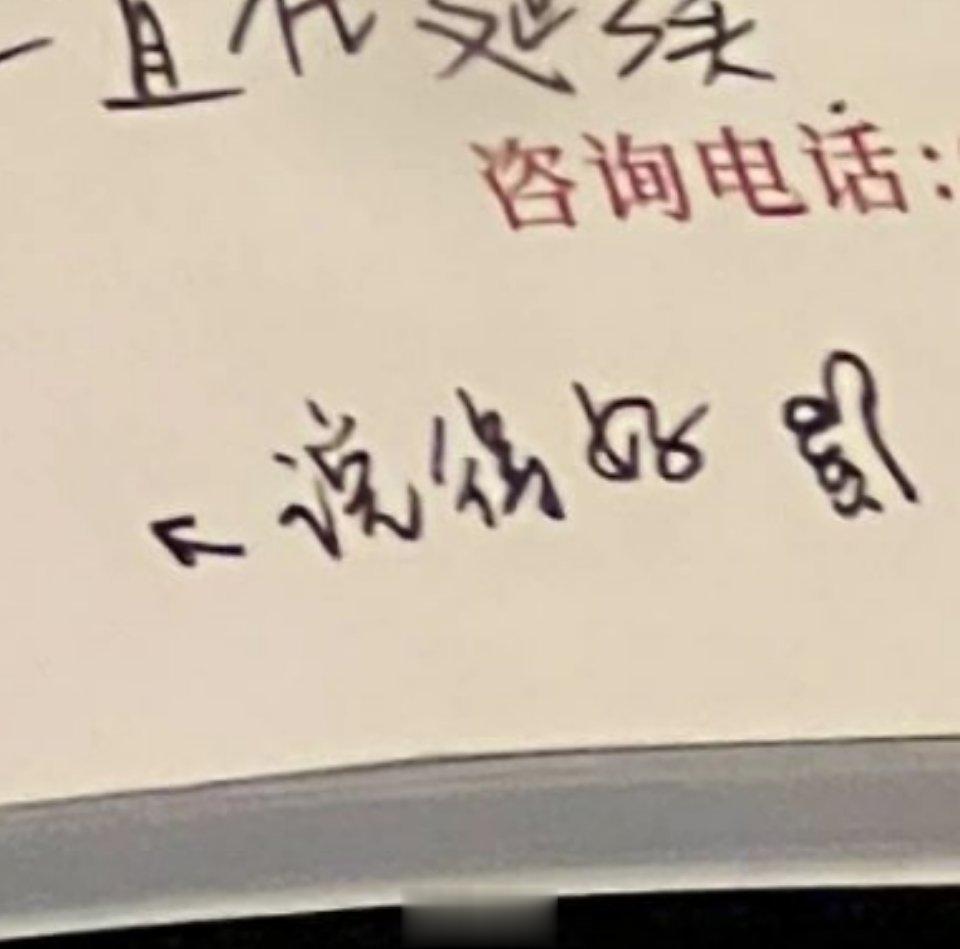 一直 延续
咨询电话:
← 说得好